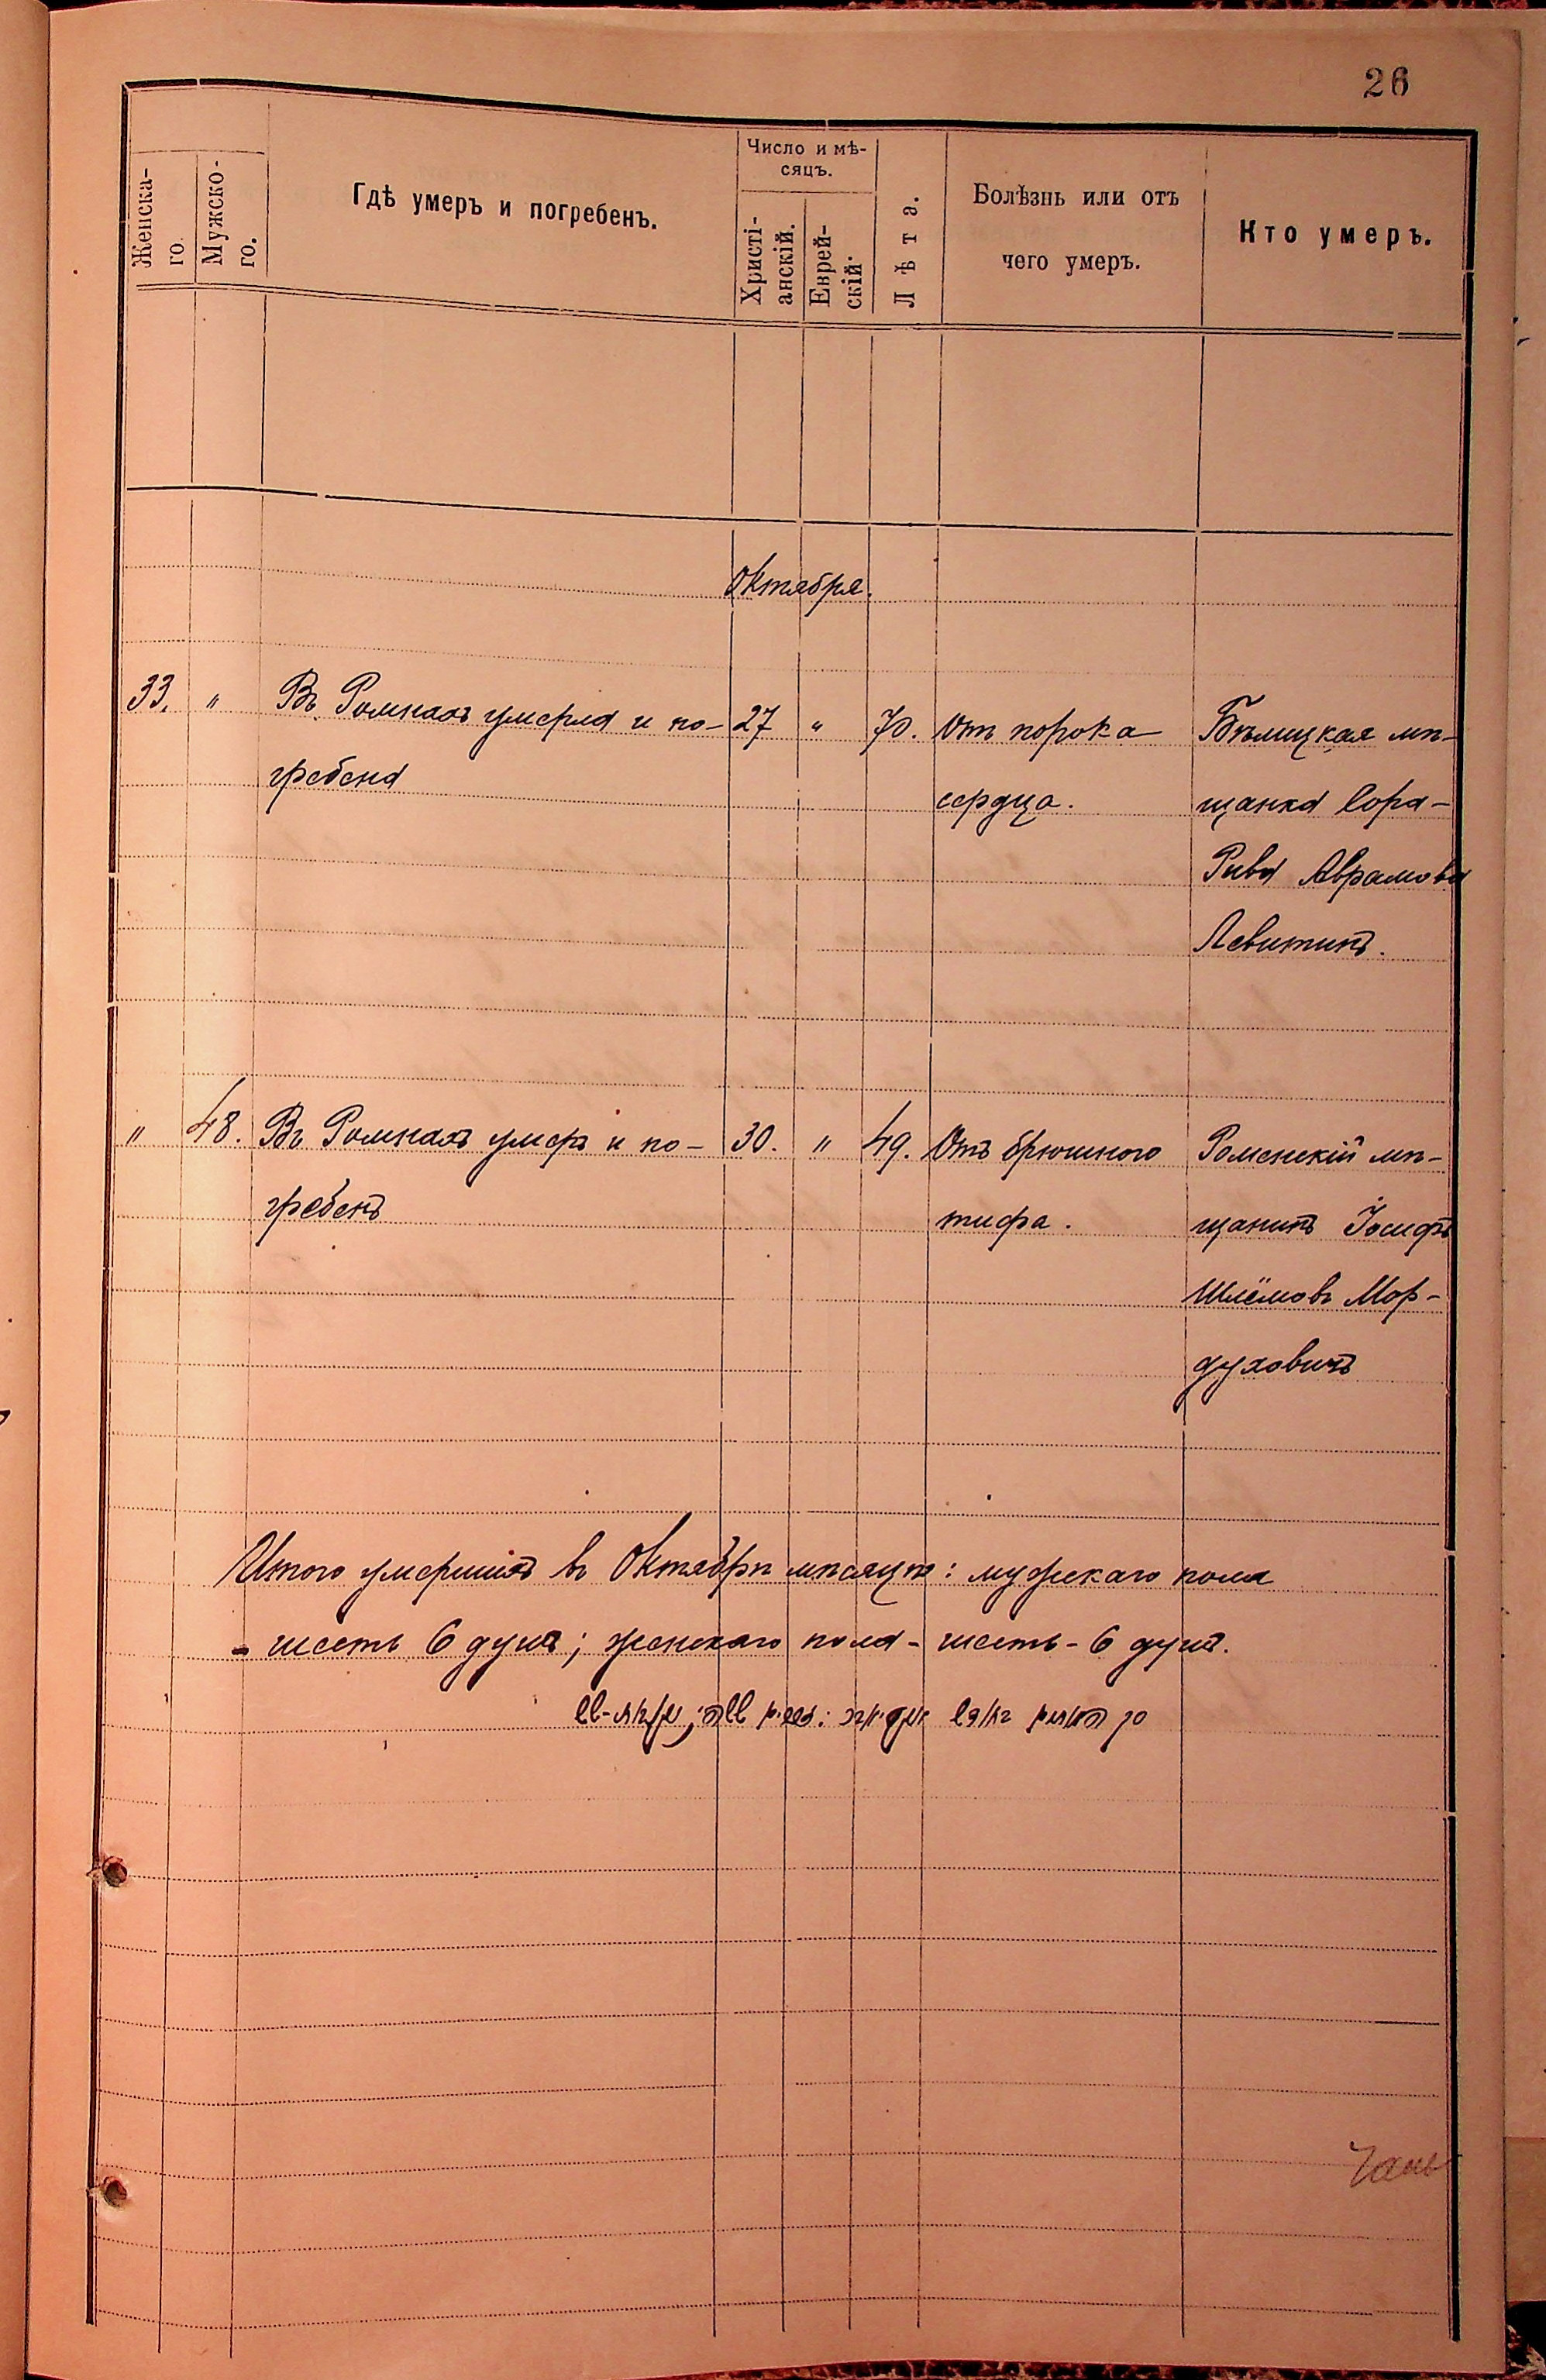 26
Женска-
го.
Мужско-
го.
Гдѣ умеръ и погребенъ.
Число и мѣ-
сяцъ.
Христі-
анскій.
Еврей-
скій.
Лѣта.
Болѣзнь или отъ
чего умеръ.
Кто умеръ.
Октября.
33. " Въ Ромнахъ умерла и по- 27 " 70. Отъ порока Бѣлицкая мѣ-
гребена сердца. щанка Сора-
Рива Аврамова
Левитинъ.
" 48. Въ Ромнахъ умеръ и по- 30. " 49. Отъ брюшного Роменскій мѣ-
гребенъ тифа. щанинъ Іосифъ
Шлёмовъ Мор-
духовичъ
Итого умершихъ въ Октябрѣ мѣсяцѣ: мужскаго пола
- шесть 6 душъ; женскаго пола - шесть - 6 душъ.